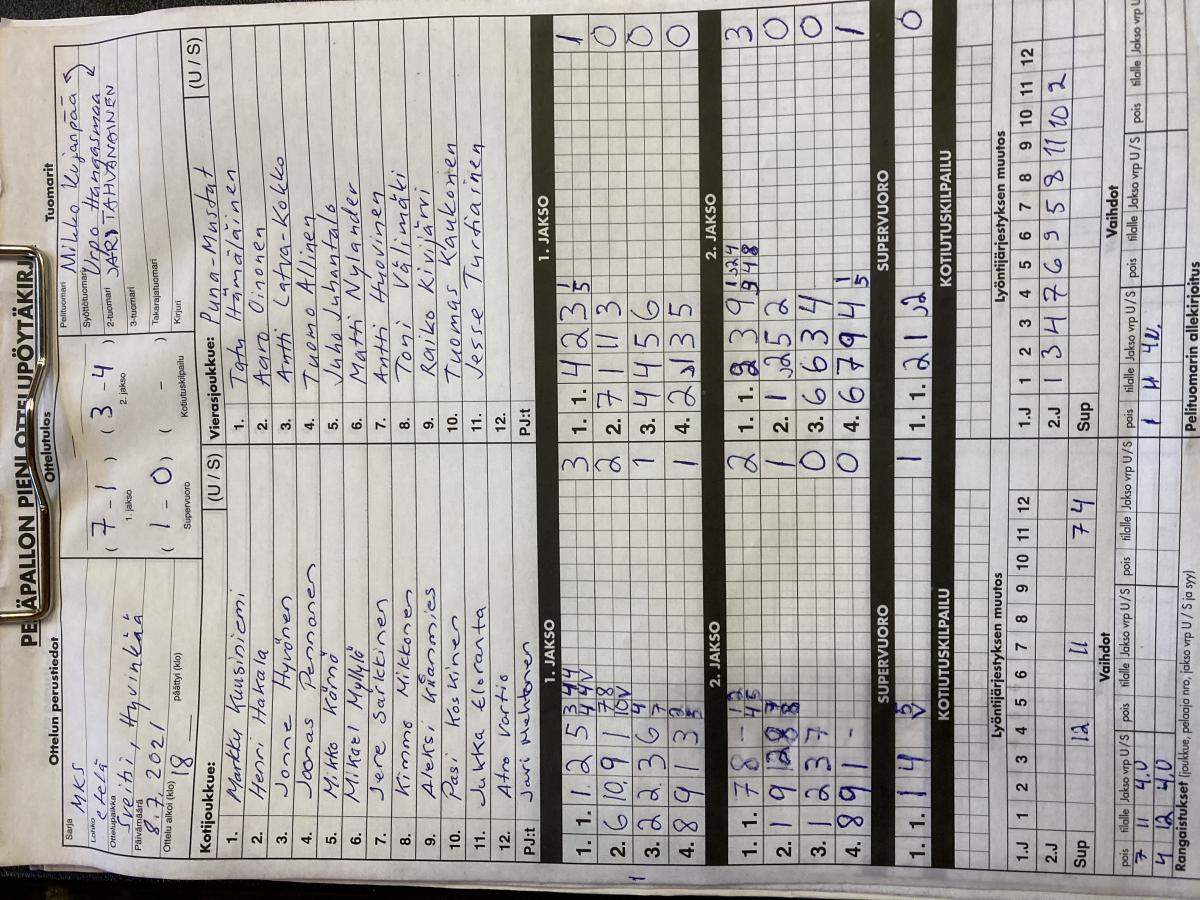 PESÄPALLON PIENI OTTELUPÖYTÄKIRJA
Ottelun perustiedot
Sarja MKS
Lohko etelä
Ottelupaikka Sveitsi, Hyvinkää
Päivämäärä 8.7.2021
Ottelu alkoi (klo) 18 päättyi (klo)
Ottelutulos
( 7 - 1 ) ( 3 - 4 )
1. jakso 2. jakso
( 1 - 0 ) ( - )
Supervuoro Kotiutuskilpailu
Tuomarit
Pelituomari Mikko Kujanpää
Syöttötuomari Urpo Hangasmaa
2-tuomari JARI TAHVANAINEN
3-tuomari
Takarajatuomari
Kirjuri
Kotijoukkue: (U / S)
1. Markku Kuusiniemi
2. Henri Hakala
3. Jonne Hyvönen
4. Joonas Pennanen
5. Mikko Körnö
6. Mikael Myllylä
7. Jere Särkkinen
8. Kimmo Mikkonen
9. Aleksi Kärmmies
10. Pasi Koskinen
11. Jukka Eloranta
12. Atro Vartio
PJ:t Jari Mehtonen
Vierasjoukkue: Puna-Mustat (U / S)
1. Tatu Hämäläinen
2. Aaro Oinonen
3. Antti Latva-Kokko
4. Tuomo Allinen
5. Juho Juhantalo
6. Matti Nylander
7. Antti Huovinen
8. Toni Välimäki
9. Raiko Kivijärvi
10. Tuomas Kaukonen
11. Jesse Turtiainen
12.
PJ:t
1. JAKSO 1. JAKSO
1. 1. 1. 2 5 3 3
2. 6 10. 9 1 2
3. 2 2. 3 6 1
4. 8 9 1 3 1
1. 1. 4 2 3 1
2. 7 1 11 3 0
3. 4 4 5 6 0
4. 2 1 3 5 0
2. JAKSO 2. JAKSO
1. 1. 7 8 - 2
2. 1 9 1
3. 1 2 3 7 0
4. 8 9 1 - 0
1. 1. 2 3 9 3
2. 1 2 5 2 0
3. 6 6 3 4 0
4. 6 7 9 4 1
SUPERVUORO SUPERVUORO
1. 1. 1 4 5 1
1. 1. 2 1 2 0
KOTIUTUSKILPAILU KOTIUTUSKILPAILU
Lyöntijärjestyksen muutos
1 2 3 4 5 6 7 8 9 10 11 12
1.J
2.J
Sup 12 11 7 4
Lyöntijärjestyksen muutos
1 2 3 4 5 6 7 8 9 10 11 12
1.J
2.J 1 3 4 7 6 9 5 8 11 10 2
Sup
Vaihdot Vaihdot
pois tilalle Jakso vrp U / S pois tilalle Jakso vrp U / S pois tilalle Jakso vrp U / S
7 11 4.0
4 12 4.0
pois tilalle Jakso vrp U / S pois tilalle Jakso vrp U / S pois tilalle Jakso vrp U
1 11 4U.
Rangaistukset (joukkue, pelaaja nro, jakso, vrp, U / S ja syy)
Pelituomarin allekirjoitus